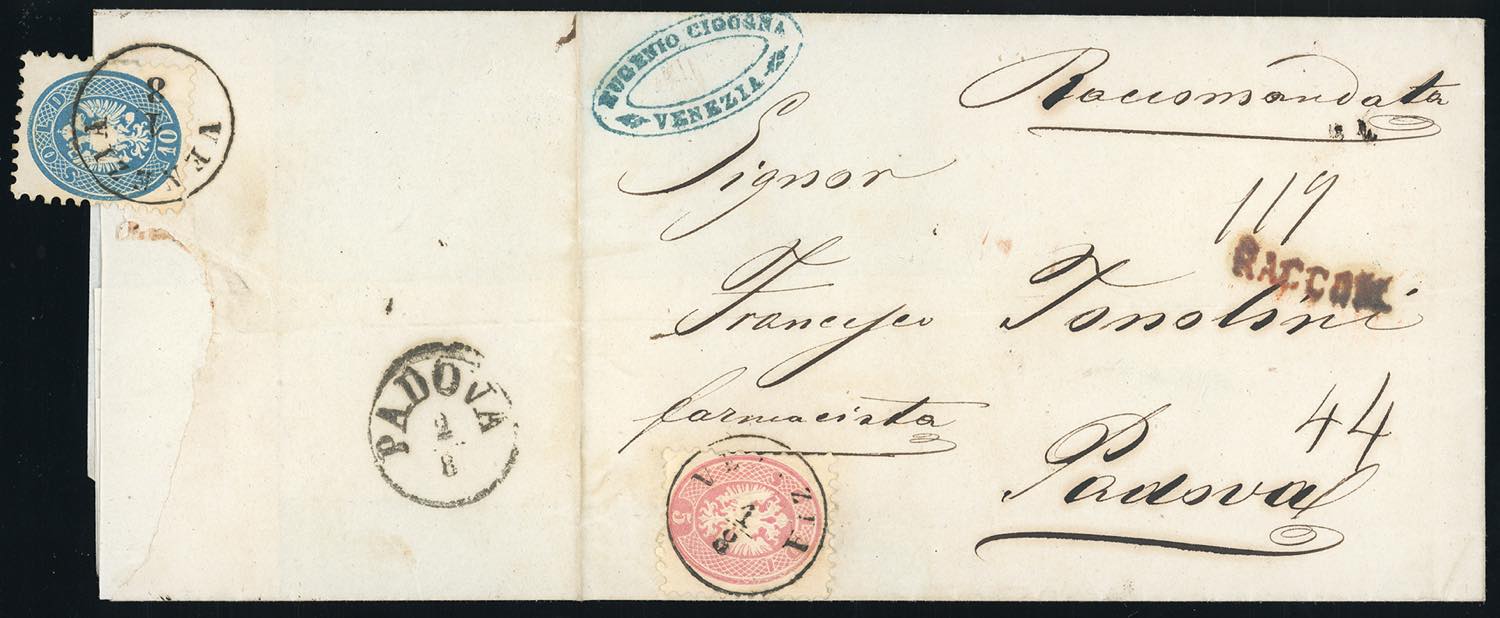 EUGENIO CICOGNA
VENEZIA
Raccomandata
Signor
119
RACCOM
Francesco Tonolini
farmacista
44
Padova
10 SOLDI
8
1
PADOVA
2
8
VENEZIA
1
8
5